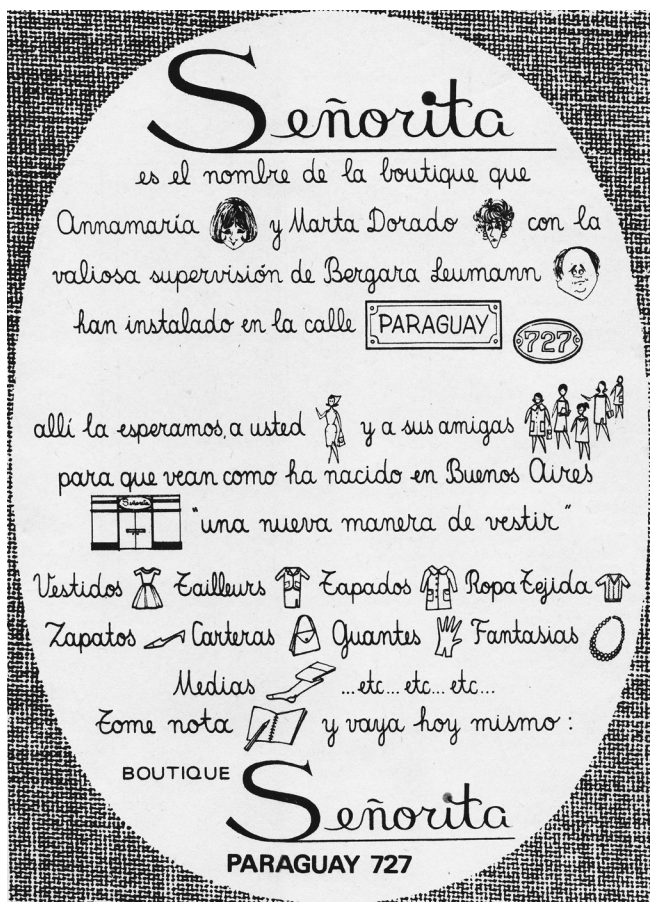 Señorita
es el nombre de la boutique que
Annamaría y Marta Dorado con la
valiosa supervisión de Bergara Leumann
han instalado en la calle PARAGUAY 727
allí la esperamos, a usted y a sus amigas
para que vean como ha nacido en Buenos Aires
Señorita "una nueva manera de vestir"
Vestidos Tailleurs Tapados Ropa Tejida
Zapatos Carteras Guantes Fantasias
Medias ...etc...etc...etc...
Tome nota y vaya hoy mismo:
BOUTIQUE
Señorita
PARAGUAY 727